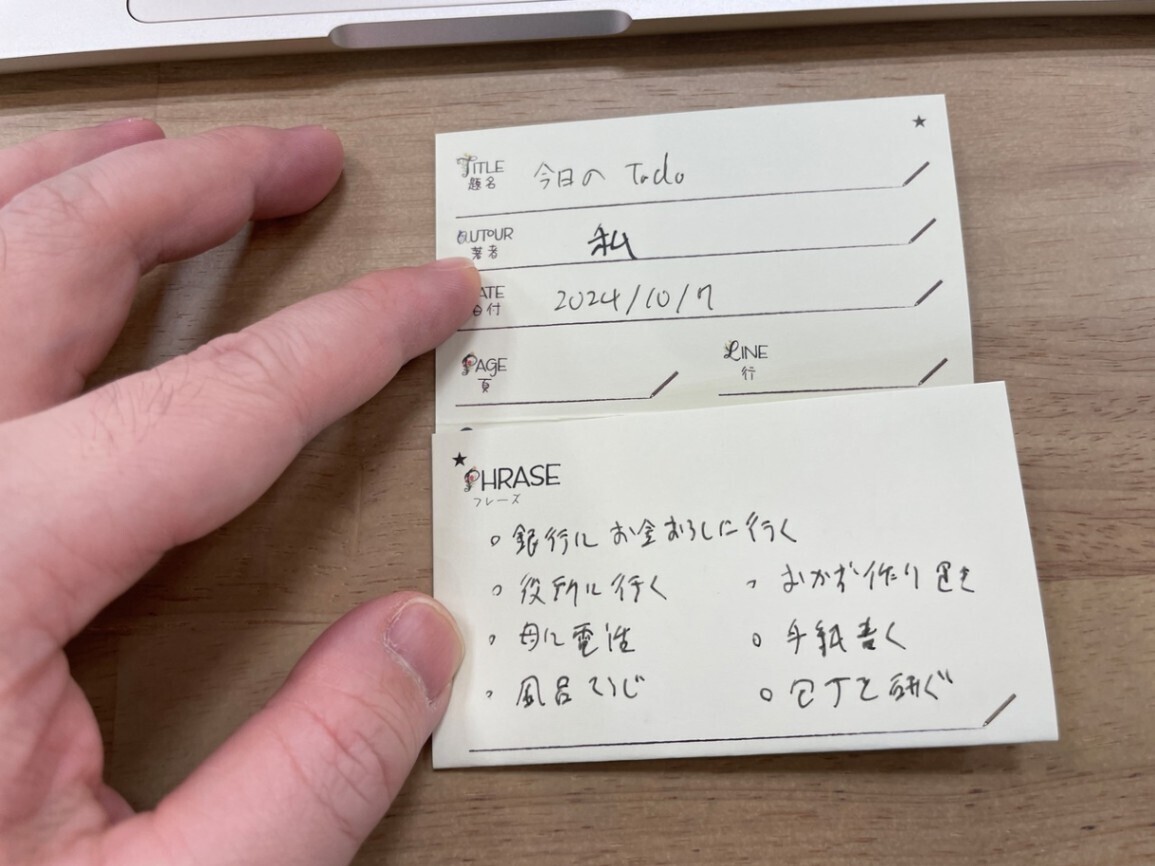 TITLE 今日の Todo
題名
AUTOUR 私
著者
ATE 2024/10/7
付
PAGE LINE
頁 行
PHRASE
フレーズ
○ 銀行に お金おろしに行く
○ 役所に行く ○ おかず作り置き
○ 母に電話 ○ 手紙書く
○ 風呂そうじ ○ 包丁を研ぐ